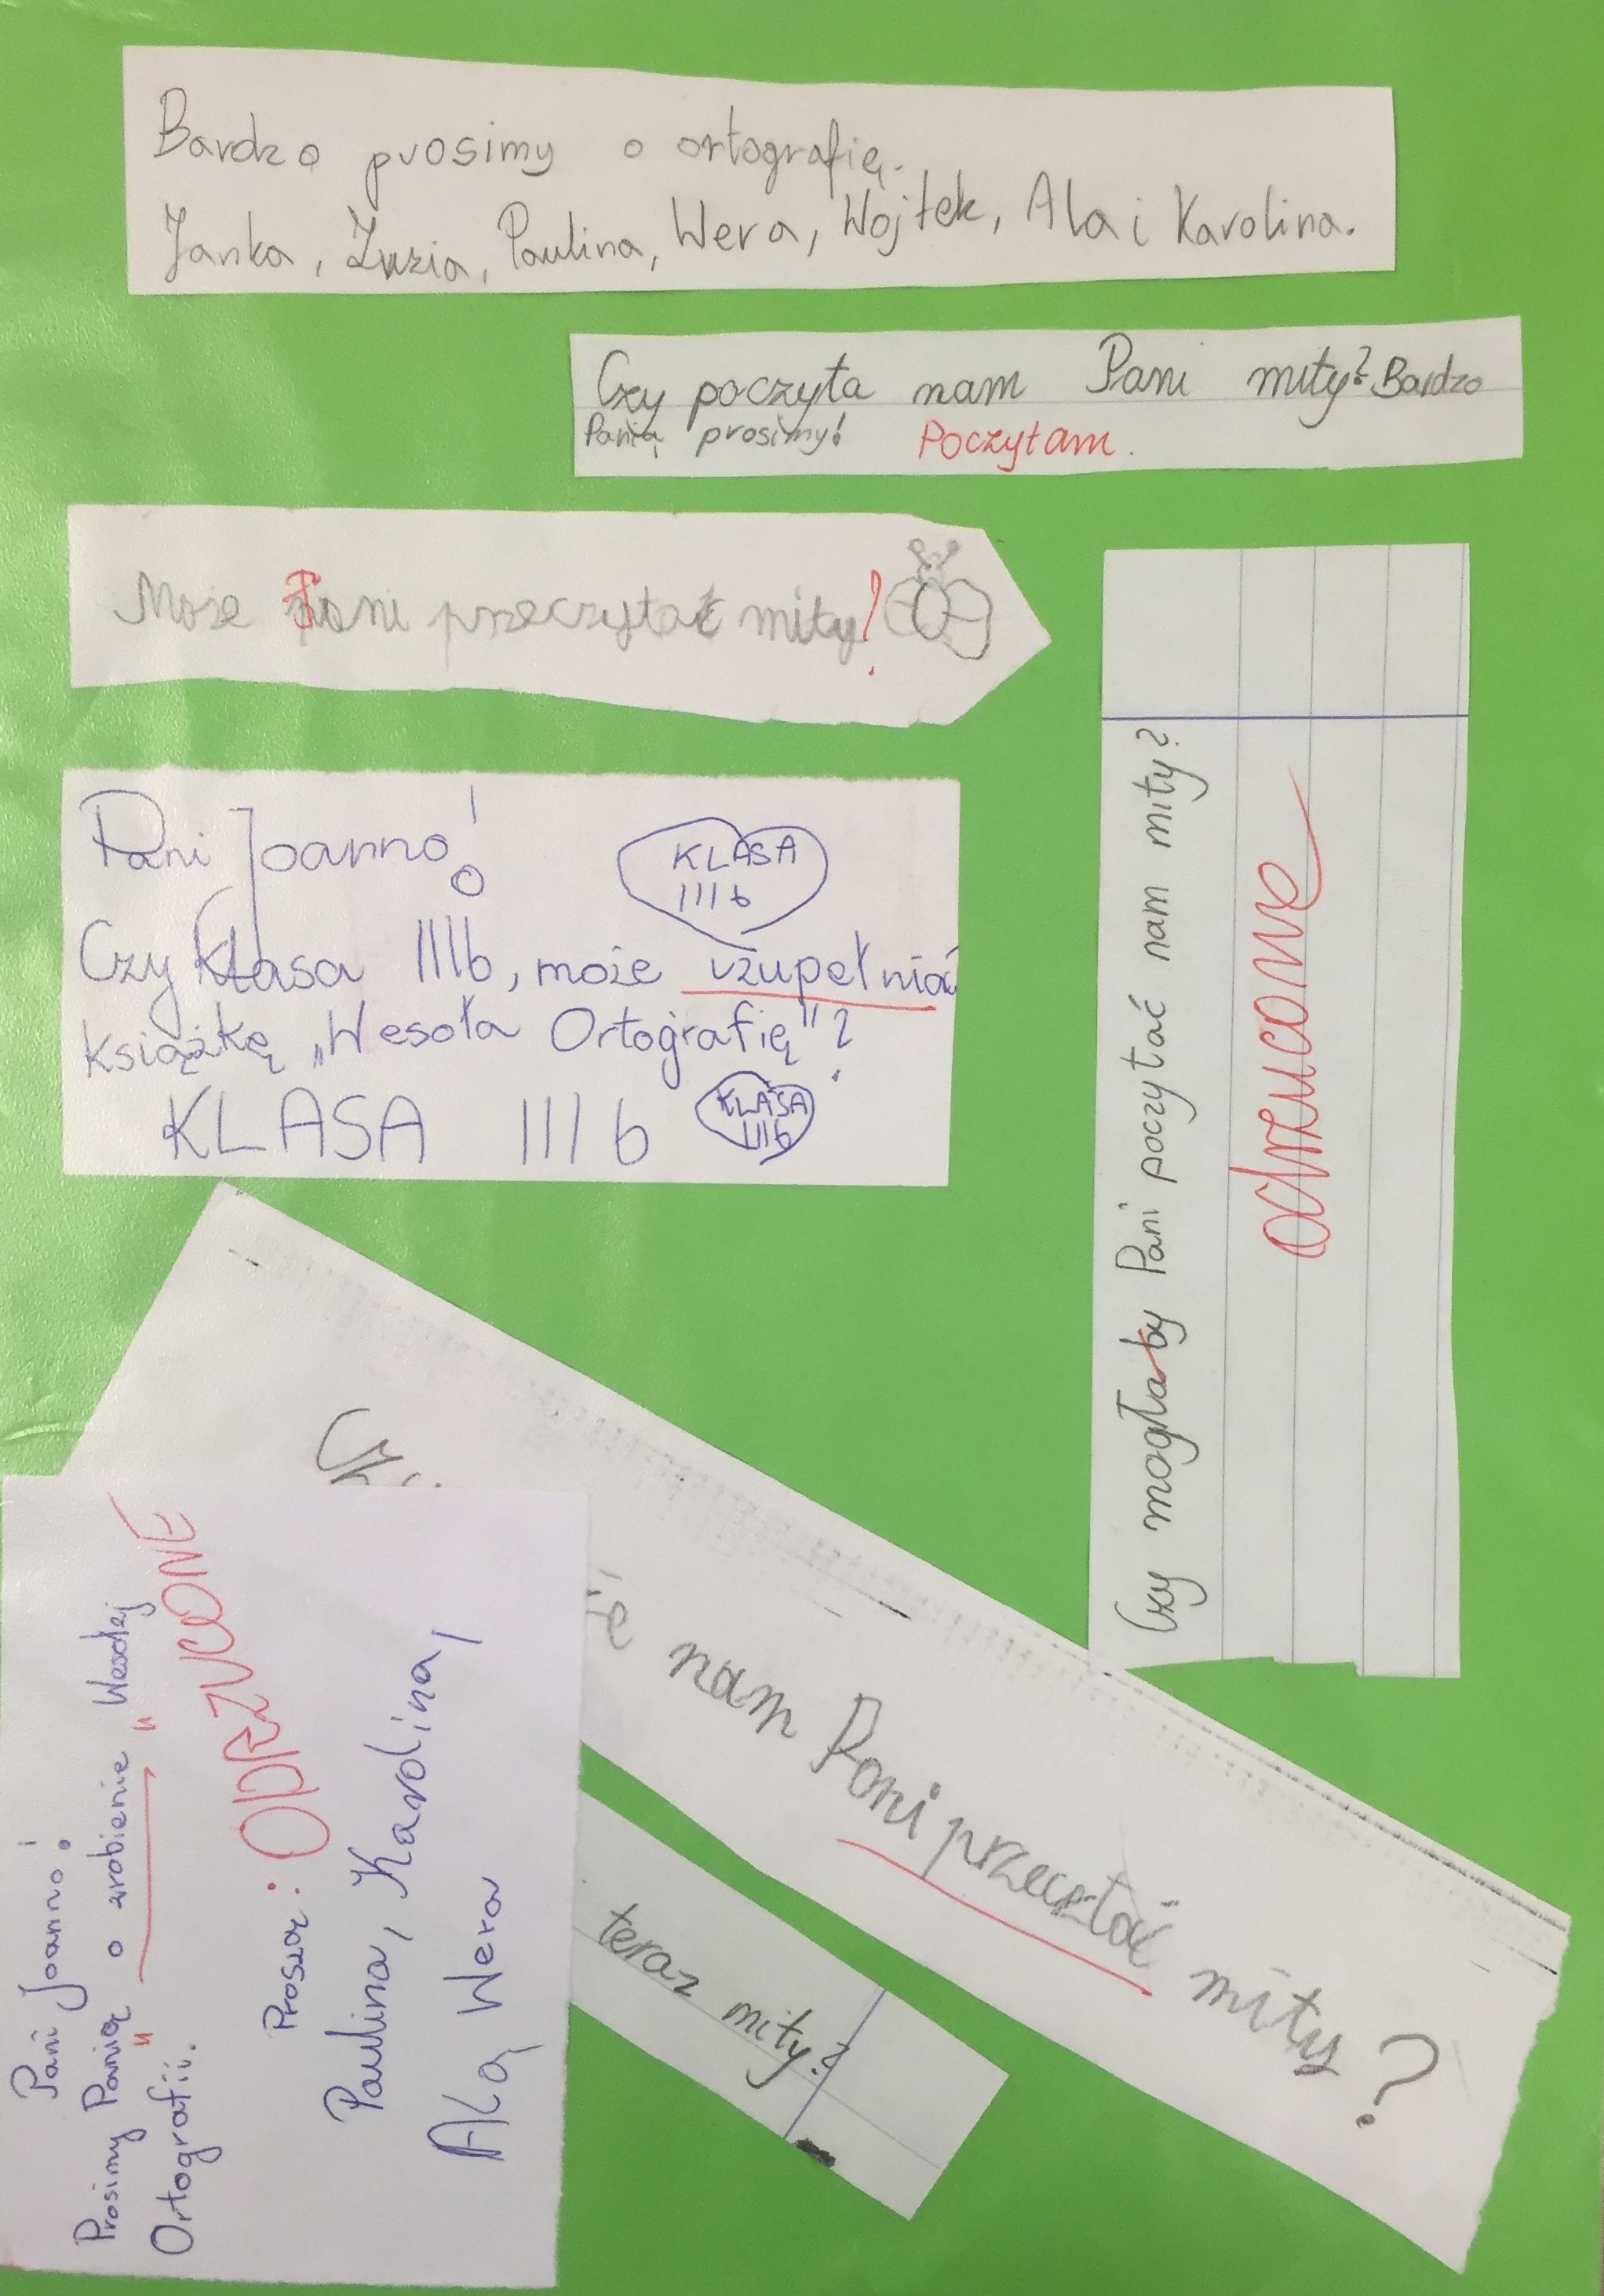 Bardzo prosimy o ortografię.
Janka, Zuzia, Paulina, Wera, Wojtek, Ala i Karolina.
Czy poczyta nam Pani mity? Bardzo
Panią prosimy! Poczytam.
Może Pani przeczytać mity?
Pani Joanno!
KLASA
III b
Czy klasa IIIb, może uzupełniać
książkę „Wesoła Ortografię"?
KLASA III b
KLASA
III b
Czy mogłaby Pani poczytać nam mity?
odrzucone
nam Pani przecztać mity?
teraz mity?
Pani Joanno!
Prosimy Panią o zrobienie „Wesołej
Ortografii".
Proszą: ODRZUCONE
Paulina, Karolina,
Alą Wera